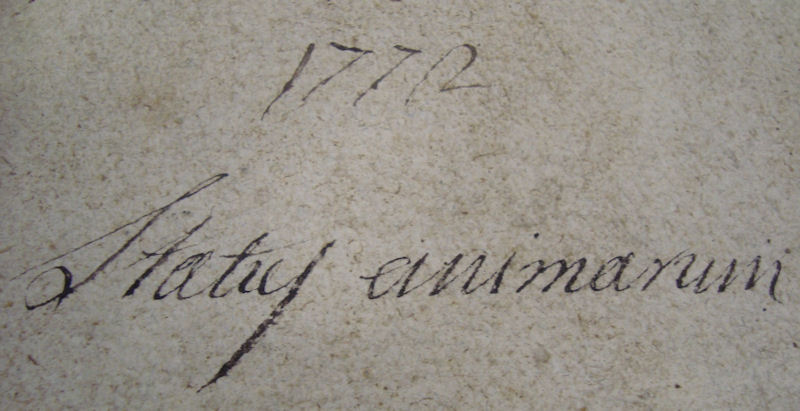 1772
Status animarum